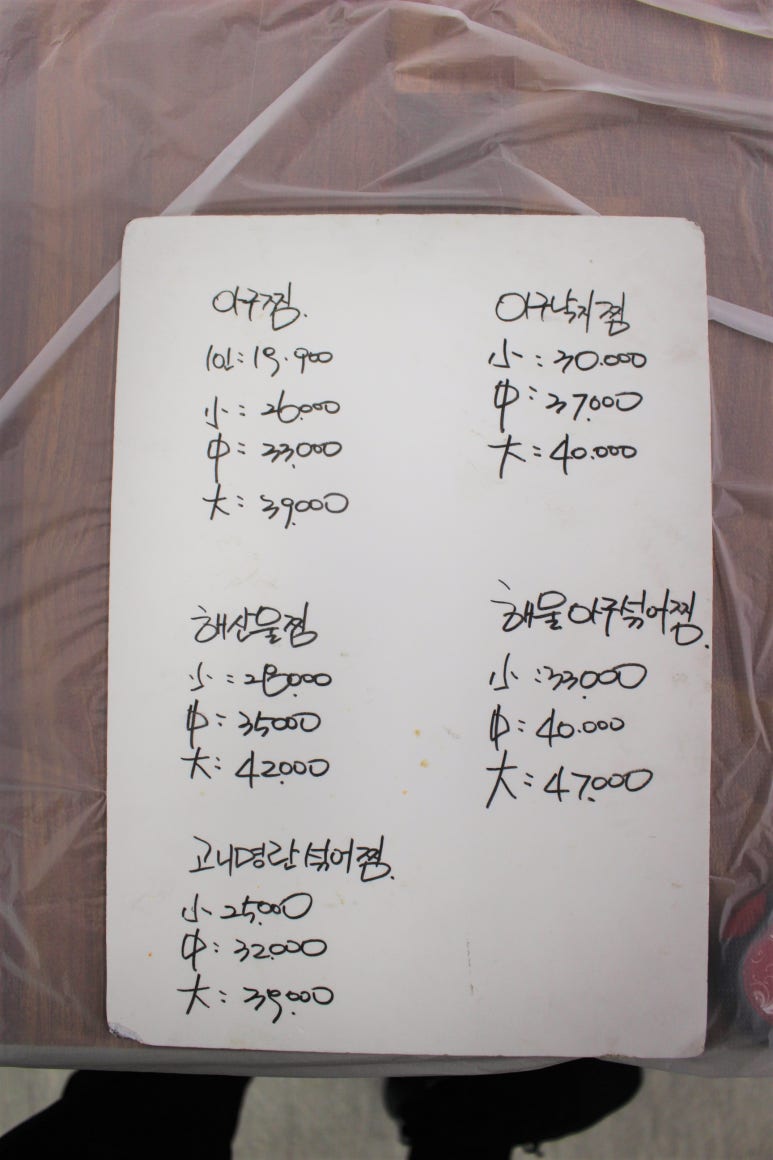 아구찜.
1인:19.900
小:26.000
中:33.000
大:39.000
아구낙지찜
小:30.000
中:37.000
大:40.000
해산물찜
小:28.000
中:35000
大:42.000
해물아구섞어찜.
小:33.000
中:40.000
大:47.000
고니명란섞어찜.
小 25.000
中:32.000
大:39.000